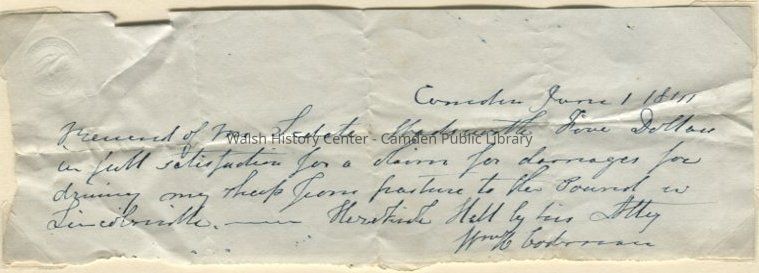 Camden June 1 18
Received of Mrs Wadsworth Five Dollars
in full satisfaction for a claim for damages for
driving my sheep from pasture to the Pound in
Lincolnville. Hall by his Atty
Wm H Codman
Walsh History Center - Camden Public Library